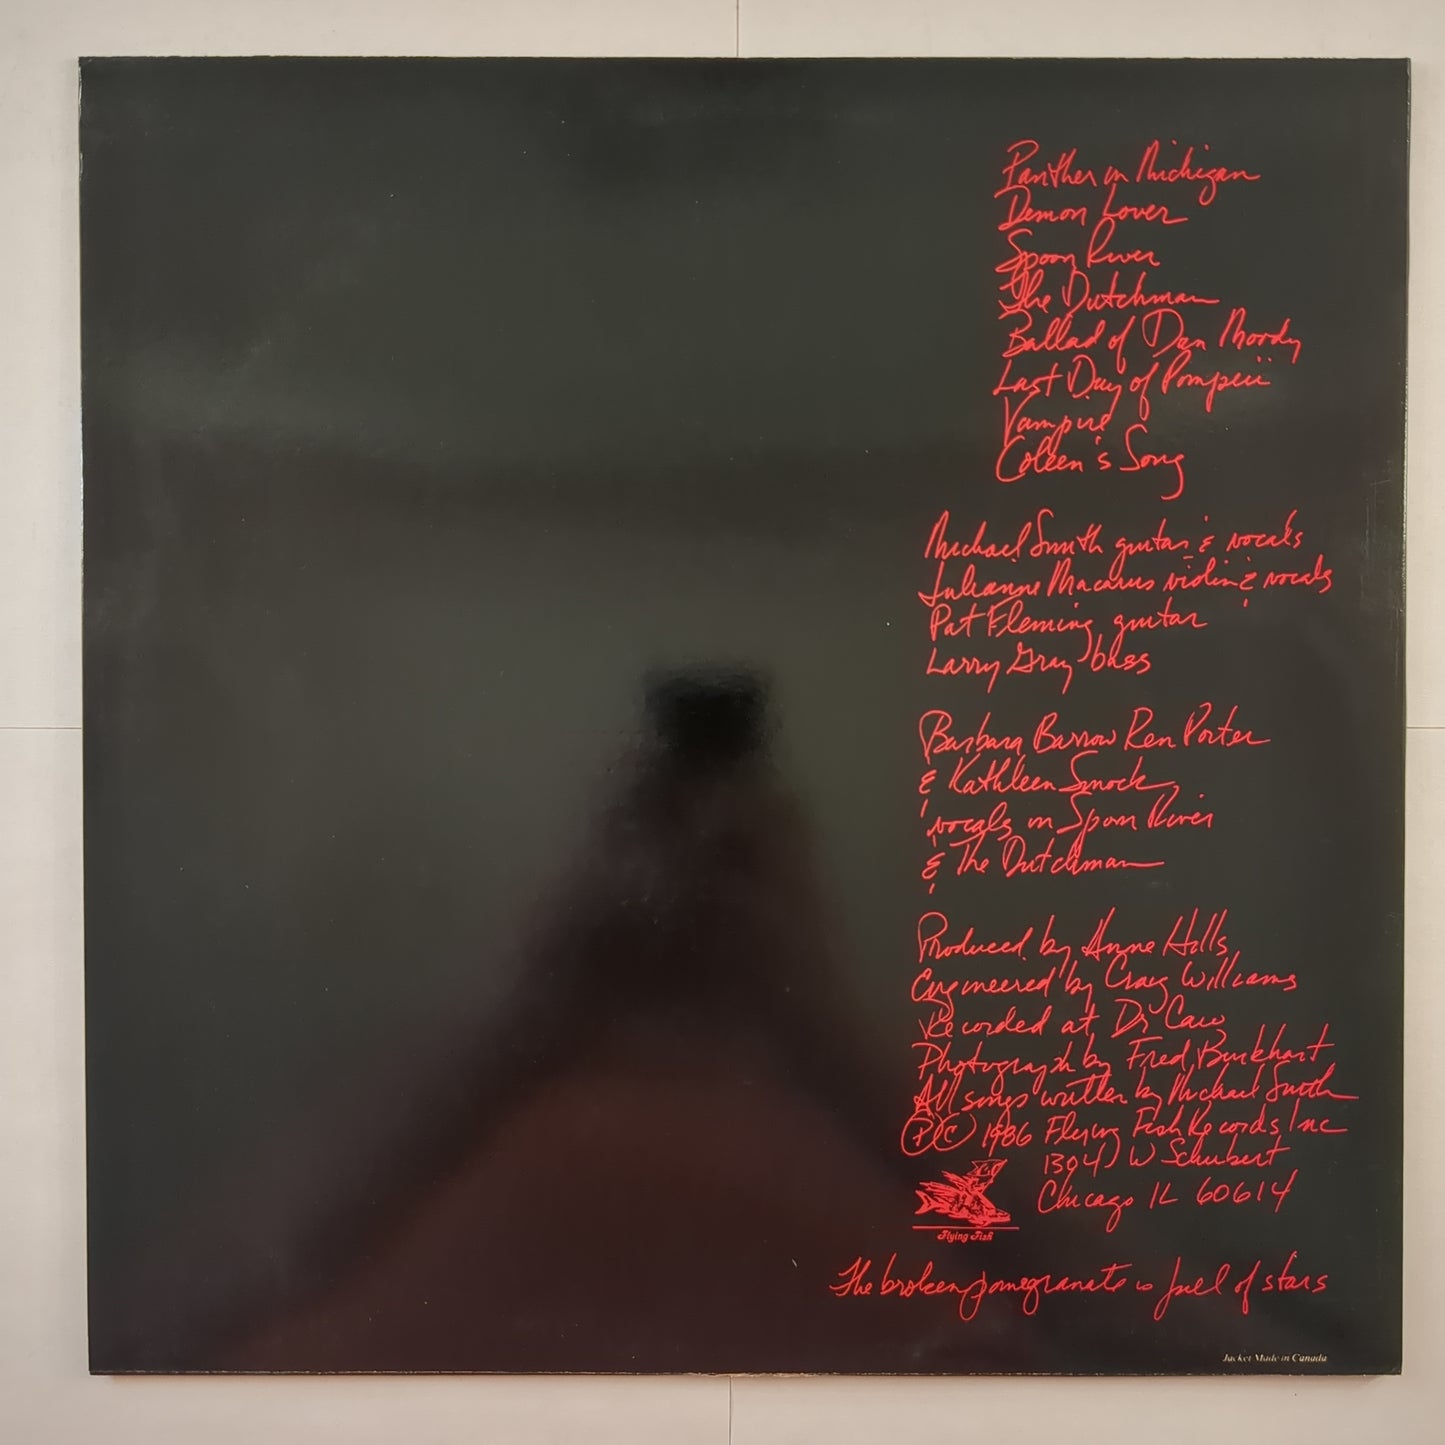 Panther in Michigan
Demon Lover
Spoon River
The Dutchman
Ballad of Dan Moody
Last Day of Pompeii
Vampire
Coleen's Song
Michael Smith guitar & vocals
Julianne Macarus violin & vocals
Pat Fleming guitar
Larry Gray bass
Barbara Barrow Ren Porter
& Kathleen Smock,
vocals on Spoon River
& The Dutchman
Produced by Anne Hills
Engineered by Craig Williams
Recorded at Dr Caw
Photograph by Fred Burkhart
All songs written by Michael Smith
Ⓟ© 1986 Flying Fish Records Inc
1304 W Schubert
Chicago IL 60614
Flying Fish
The broken pomegranate is full of stars
Jacket Made in Canada